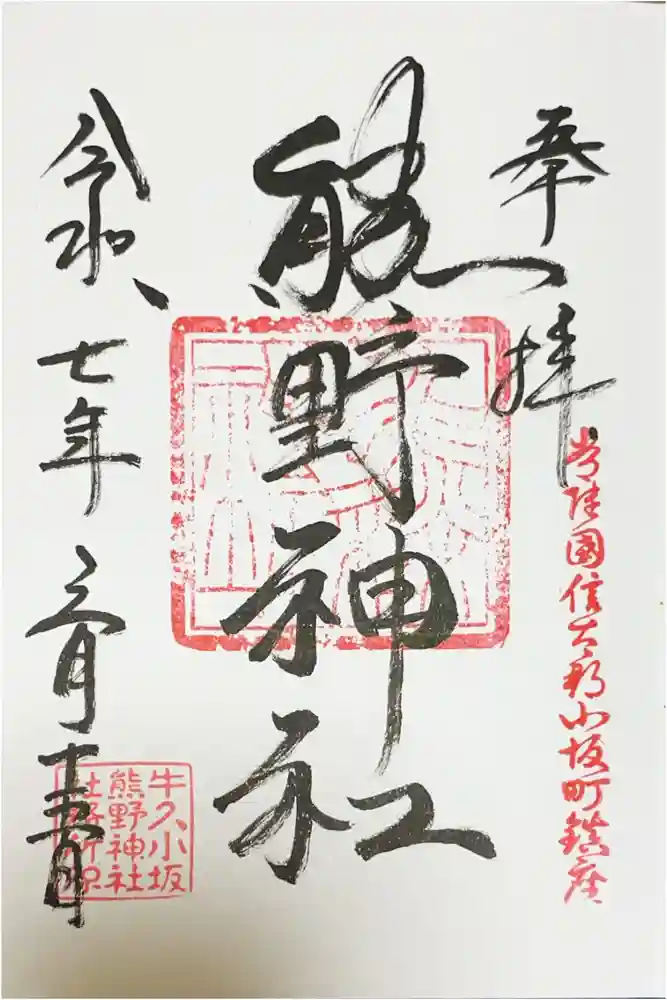 常陸國信太郡小坂町鎮座
奉拝
熊野神社
令和七年
牛久小坂
熊野神社
社務所印